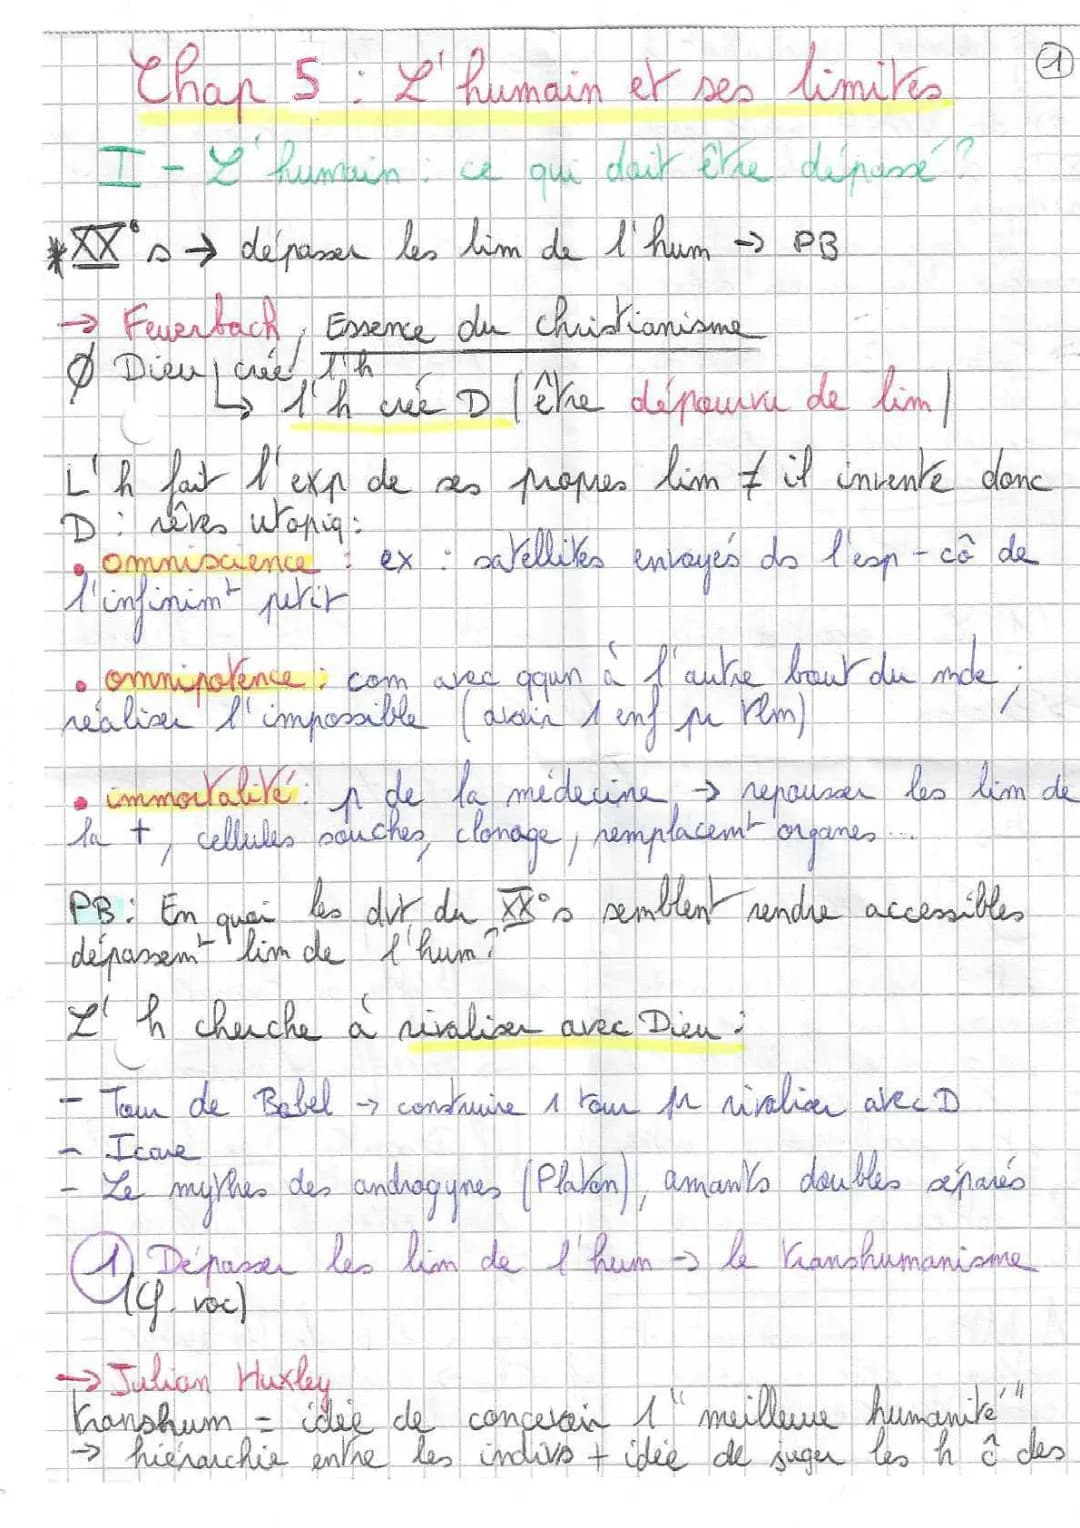 ①
Chap 5 : L'humain et ses limites
I - L'humain : ce qui doit être dépassé ?
*XX° s → dépasser les lim de l'hum → PB
→ Feuerbach, Essence du christianisme
Ø Dieu crée l'h
↳ l'h crée D (être dépourvu de lim)
L'h fait l'exp de ses propres lim ≠ il invente donc
D : rêves utopiq :
• omniscience : ex : satellites envoyés ds l'esp - cô de
l'infinimt petit
• omnipotence : com avec qqun à l'autre bout du mde ;
réaliser l'impossible (avoir 1 enf pr
• immortalité : p de la médecine → repousser les lim de
la +, cellules souches, clonage, remplacemt organes...
PB : En quoi les dvt du XX°s semblent rendre accessibles
dépassemt lim de l'hum ?
L'h cherche à rivaliser avec Dieu :
- Tour de Babel → construire 1 tour pr rivaliser avec D
- Icare
- Le mythes des androgynes (Platon), amants doubles séparés
① Dépasser les lim de l'hum → le transhumanisme
(cf. voc)
→ Julian Huxley
transhum = idée de concevoir 1 "meilleure humanité"
→ hiérarchie entre les indivs + idée de juger les h ĉ des